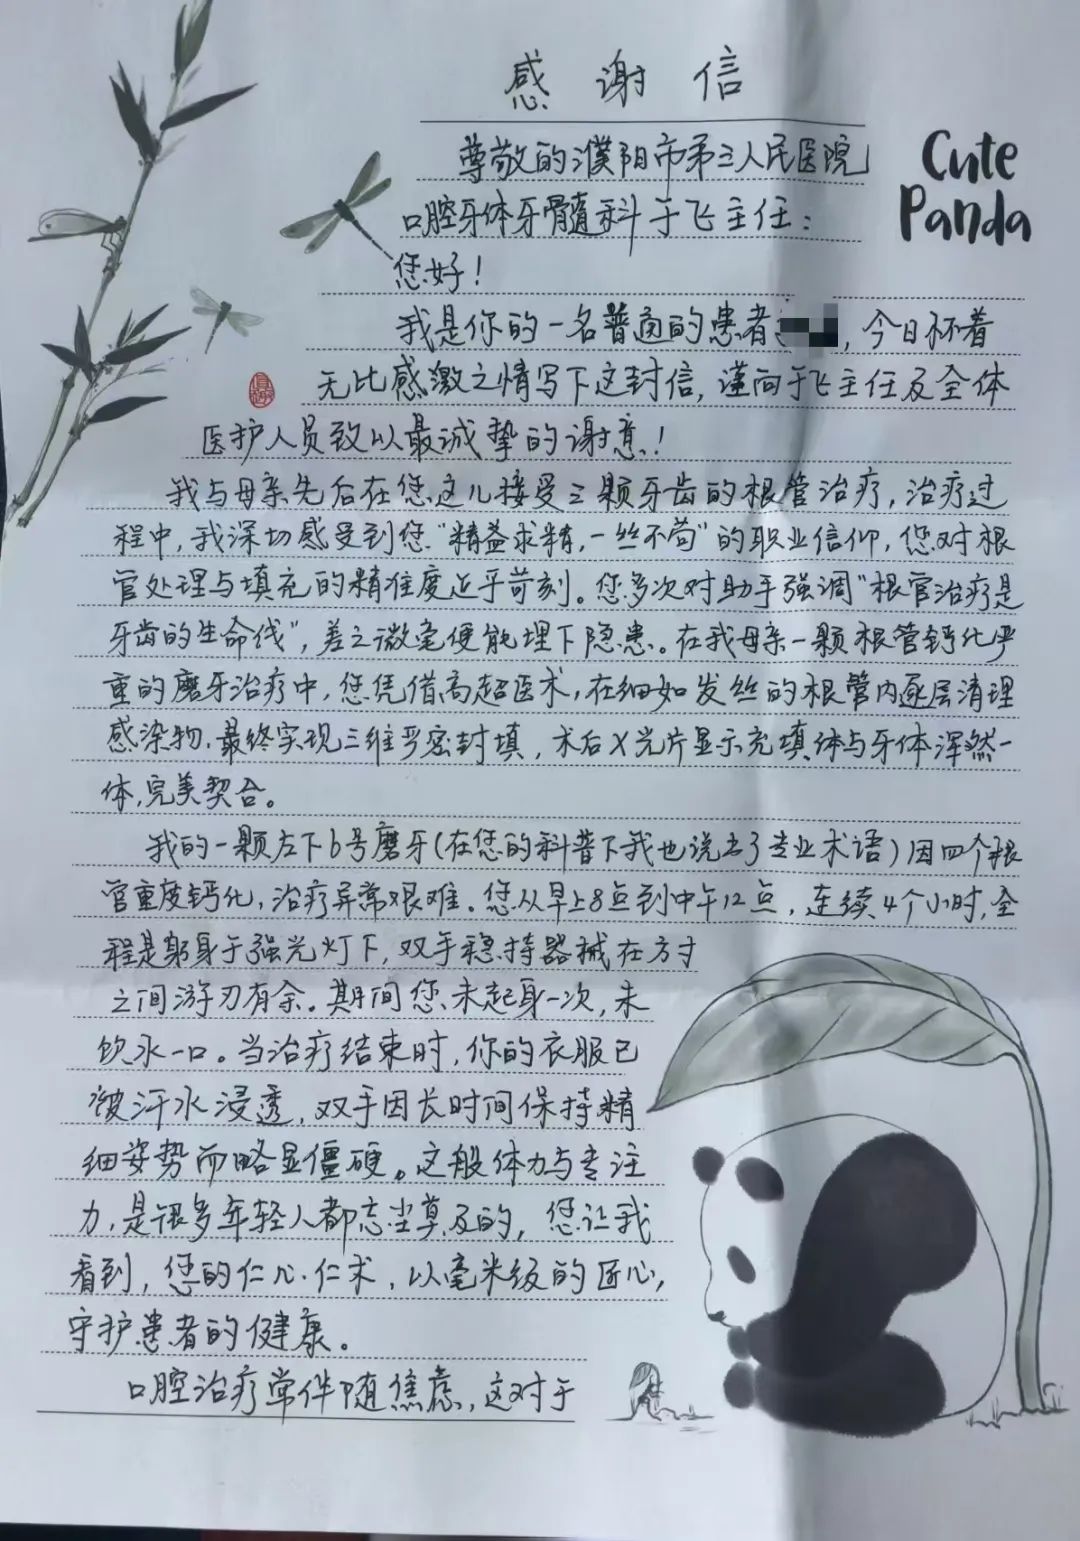 感谢信
Cute
Panda
尊敬的濮阳市第三人民医院
口腔牙体牙髓科于飞主任：
您好！
我是你的一名普通的患者，今日怀着
无比感激之情写下这封信，谨向于飞主任及全体
医护人员致以最诚挚的谢意！
我与母亲先后在您这儿接受三颗牙齿的根管治疗，治疗过
程中，我深切感受到您“精益求精，一丝不苟”的职业信仰，您对根
管处理与填充的精准度近乎苛刻。您多次对助手强调“根管治疗是
牙齿的生命线”，差之微毫便能埋下隐患。在我母亲一颗根管钙化严
重的磨牙治疗中，您凭借高超医术，在细如发丝的根管内逐层清理
感染物，最终实现三维严密封填，术后X光片显示充填体与牙体浑然一
体，完美契合。
我的一颗左下6号磨牙(在您的科普下我也说上了专业术语)因四个根
管重度钙化，治疗异常艰难。您从早上8点到中午12点，连续4个小时，全
程是躬身于强光灯下，双手稳持器械在方寸
之间游刃有余。期间您未起身一次，未
饮水一口。当治疗结束时，你的衣服已
被汗水浸透，双手因长时间保持精
细姿势而略显僵硬。这般体力与专注
力，是很多年轻人都志尘莫及的，您让我
看到，您的仁心仁术，以毫米级的匠心，
守护患者的健康。
口腔治疗常伴随焦虑，这对于